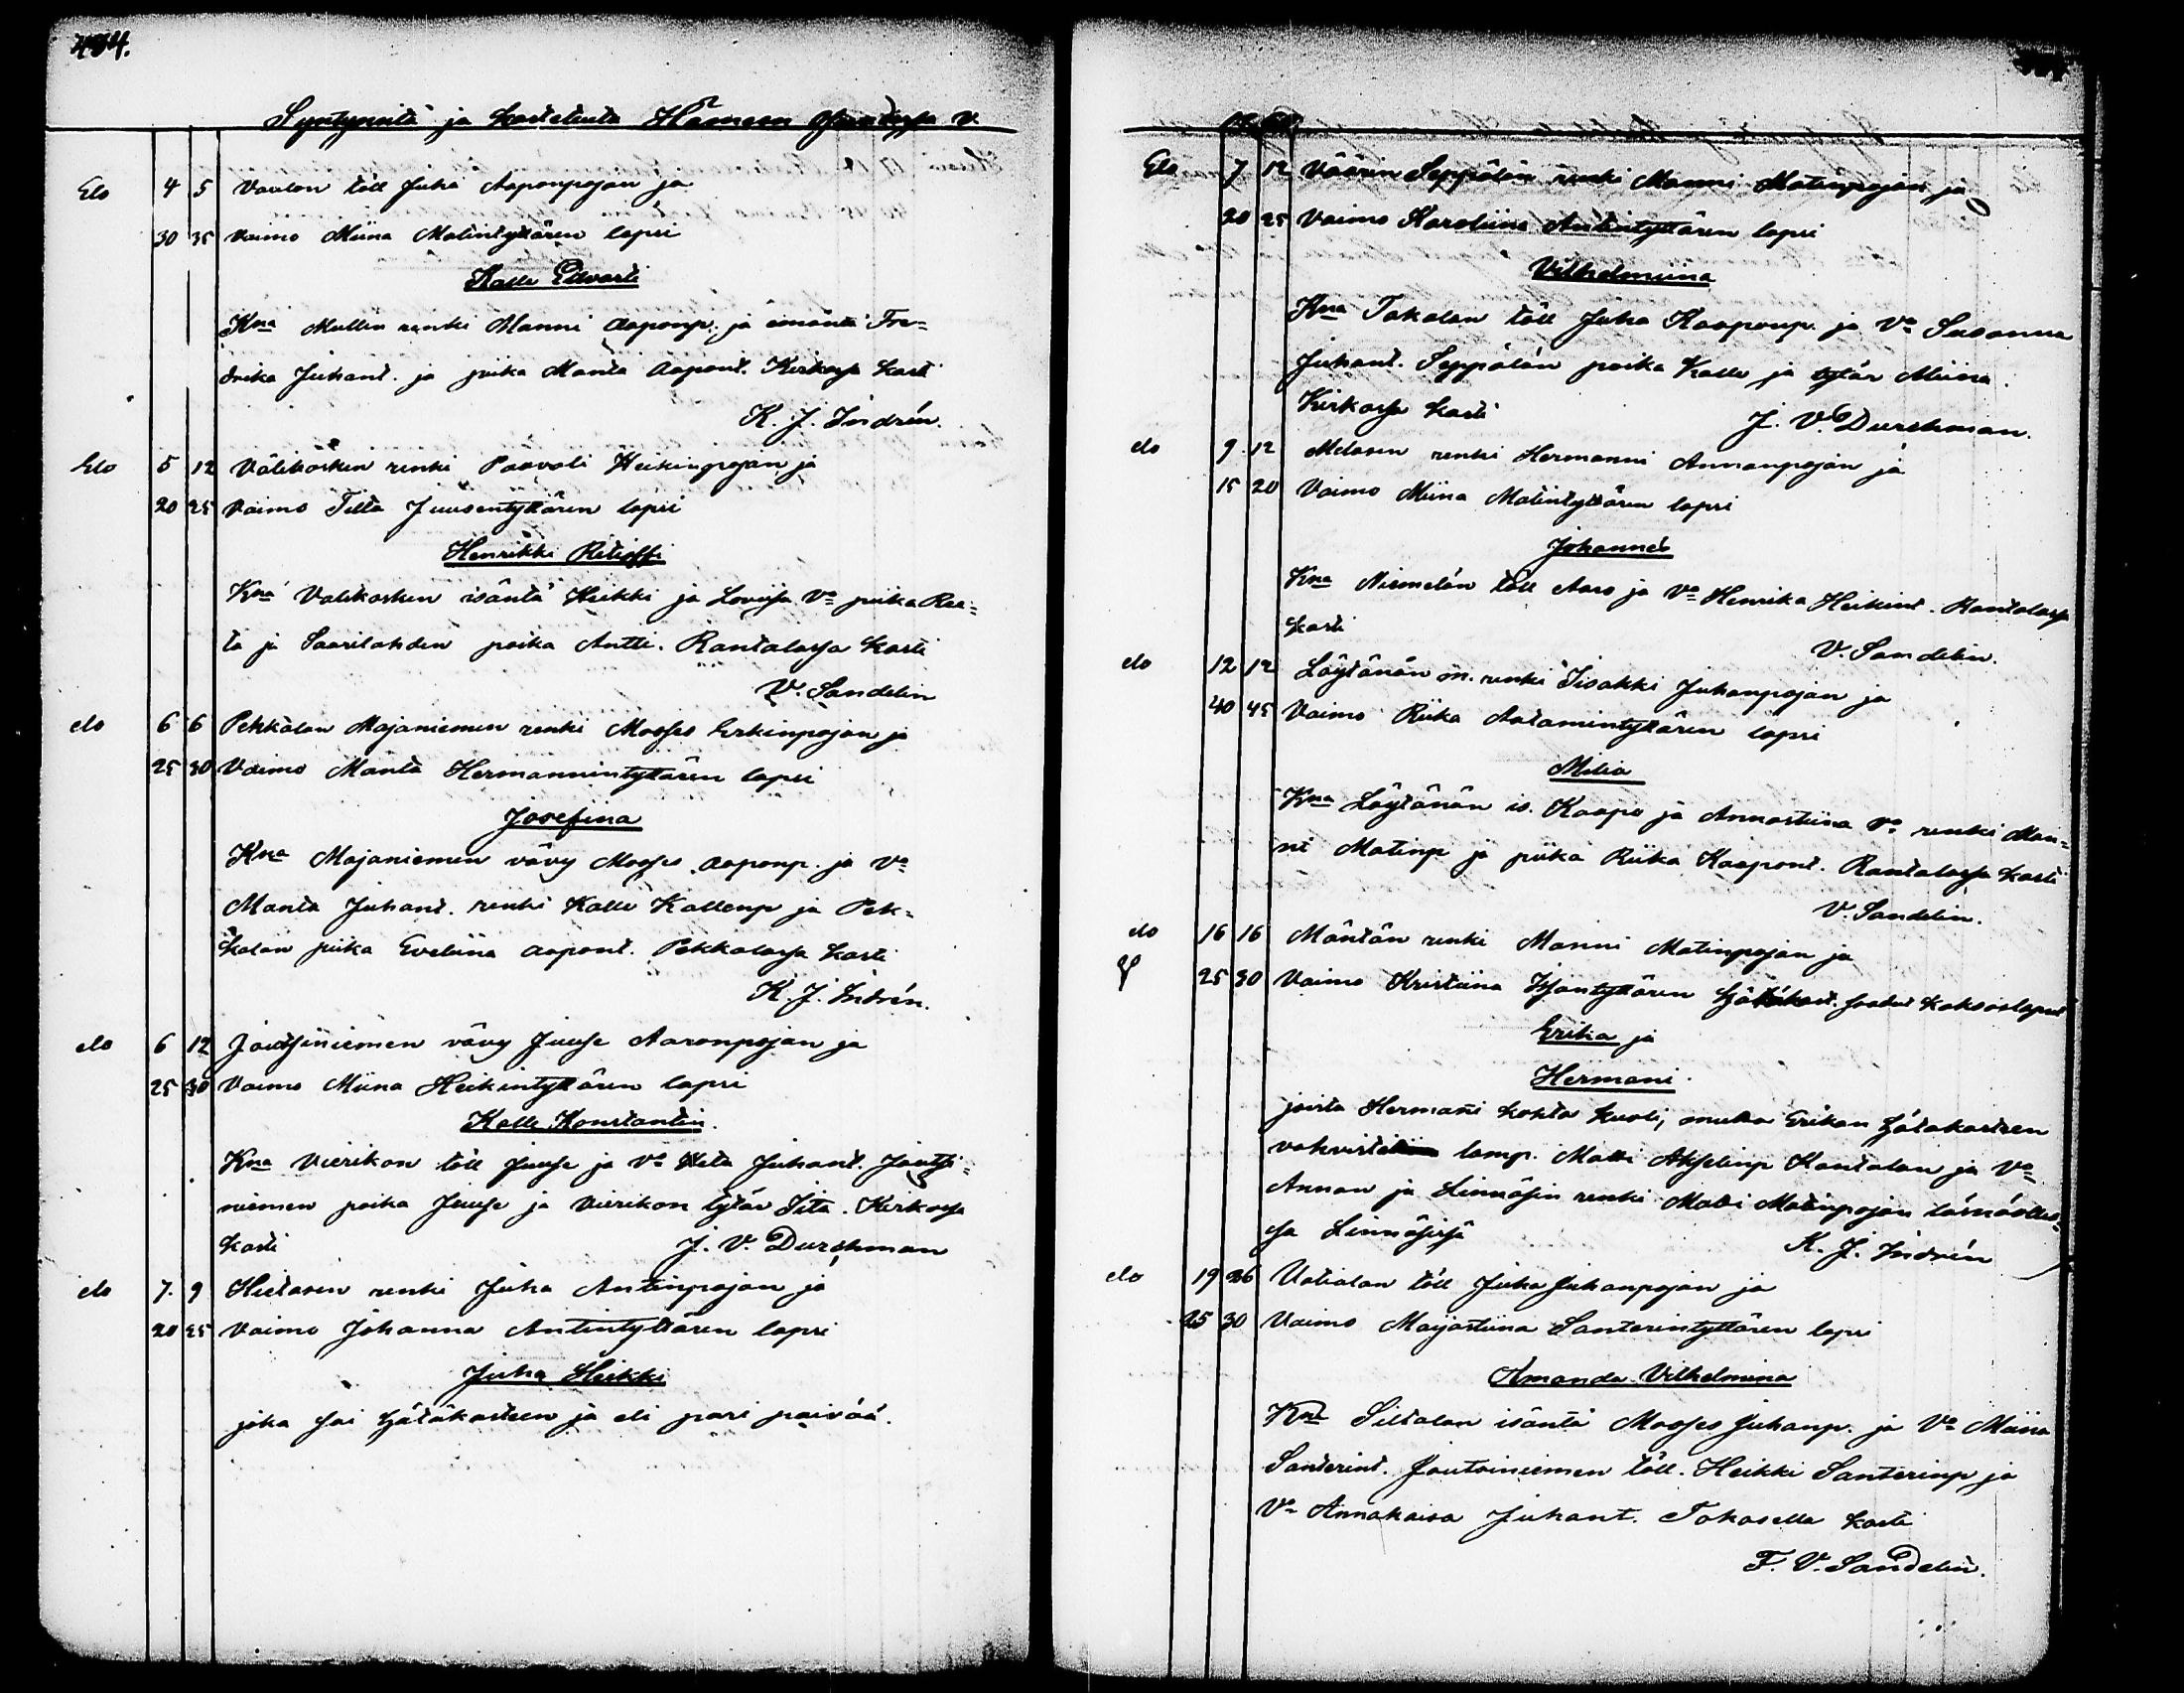 Syntyneitä ja kastetuita Hämeen V.
Elo 4 5 Vaulon töll Juha Aaponpojan ja
30 35 Vaimo Miina Matintyttären lapsi
Kalle Edvarti
Kna Mullin renki Manni Aaponp. ja emäntä Fre=
drika Juhant. ja piika Manta Aapont. Kirkossa kasti
K. J. Indrén.
Elo 5 12 Välikosken renki Paavali Heikinpojan ja
20 25 Vaimo Tilta Juusentyttären lapsi
Henrikki
Kna Välikosken isäntä Heikki ja Lovisa Va piika Ree=
ta ja Saarilahden poika Antti. Rantalassa kasti
V. Sandelin
elo 6 6 Pekkalan Majaniemen renki Mooses Erkinpojan ja
25 30 Vaimo Manta Hermannintyttären lapsi
Josefina
Kna Majaniemen vävy Mooses Aaponp. ja Va
Manta Juhant. renki Kalle Kallenp ja Pek=
kalan piika Eveliina Aapont. Pekkalassa kasti
K. J. Indrén.
elo 6 12 Joutsiniemen vävy Juuse Aaronpojan ja
25 30 Vaimo Miina Heikintyttären lapsi
Kalle Konstantin.
Kna Vierikon töll Juuse ja Va Juhant. Joutsi=
niemen poika Juuse ja Vierikon tytär Iita. Kirkossa
kasti J. V. Durchman
elo 7. 9 Hietasen renki Juha Antinpojan ja
20 25 Vaimo Johanna Antintyttären lapsi
Juha Heikki
joka sai hätäkasteen ja eli pari päivää.
Elo 7 12 Väärin Seppälän renki Manni Matinpojan ja
20 25 Vaimo Karoliina Antintyttären lapsi
Vilhelmiina
Kna Takalan töll Juha Kaaponp. ja Va Susanna
Juhant. Seppälän poika Kalle ja tytär Miina.
Kirkossa kasti J. V. Durchman.
elo 9. 12 Melasen renki Hermanni Annanpojan ja
15 20 Vaimo Miina Matintyttären lapsi
Johannes
Kna Niemelän töll Aaro ja Va Henrika Heikint. Rantalassa
kasti
V. Sandelin.
elo 12 12 Löytänän m. renki Iisakki Juhanpojan ja
40 45 Vaimo Riika Aatamintyttären lapsi
Milia
Kna Löytänän is. Kaapo ja Annastiina Va renki Man=
ni Matinp ja piika Riika Kaapont. Rantalassa kasti
V. Sandelin.
elo 16 16 Mäntän renki Manni Matinpojan ja
25 30 Vaimo Kristiina hätäkast. saadut kaksoslapset
Erika ja
Hermani.
joista Hermani kohta kuoli, mutta Erikan hätäkasteen
lamp. Matti Akselinp Kantolan ja Va
Annan ja Linnäsin renki Matti Matinpojan läsnäolles=
sa Linnäsissä K. J. Indrén
elo 19 26 Uotialan töll Juha Juhanpojan ja
25 30 Vaimo Maijastiina Santerintyttären lapsi
Amanda Vilhelmina
Kna Siltalan isäntä Mooses Juhanp. ja Va Miina
Santerint. Joutsiniemen töll. Heikki Santerinp ja
Va Annakaisa Juhant. Takasella kasti
F. V. Sandelin.